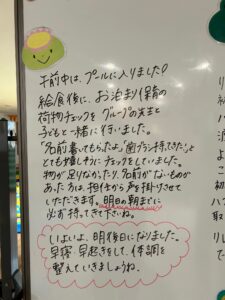 午前中は、プールに入りました♡
給食後に、お泊まり保育の
荷物チェックを グループの先生と
子どもと一緒に行いました。
「名前書いてもらったよ」「歯ブラシ持ってきた!」と
とても嬉しそうにチェックをしていました。
物が足りなかったり、名前がないものが
あった方は、担任から声を掛けさせて
いただきます。明日の朝までに
必ず持ってきて下さいね。
いよいよ、明後日になりました。
早寝早起きをして、体調を
整えていきましょうね。